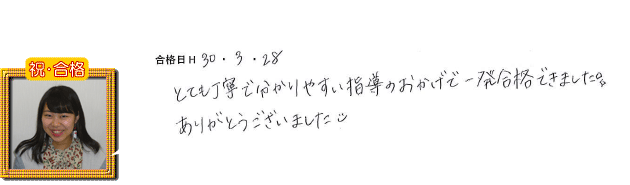 祝・合格
合格日 H 30・3・28
とても丁寧で分かりやすい指導のおかげで一発合格できました。
ありがとうございました